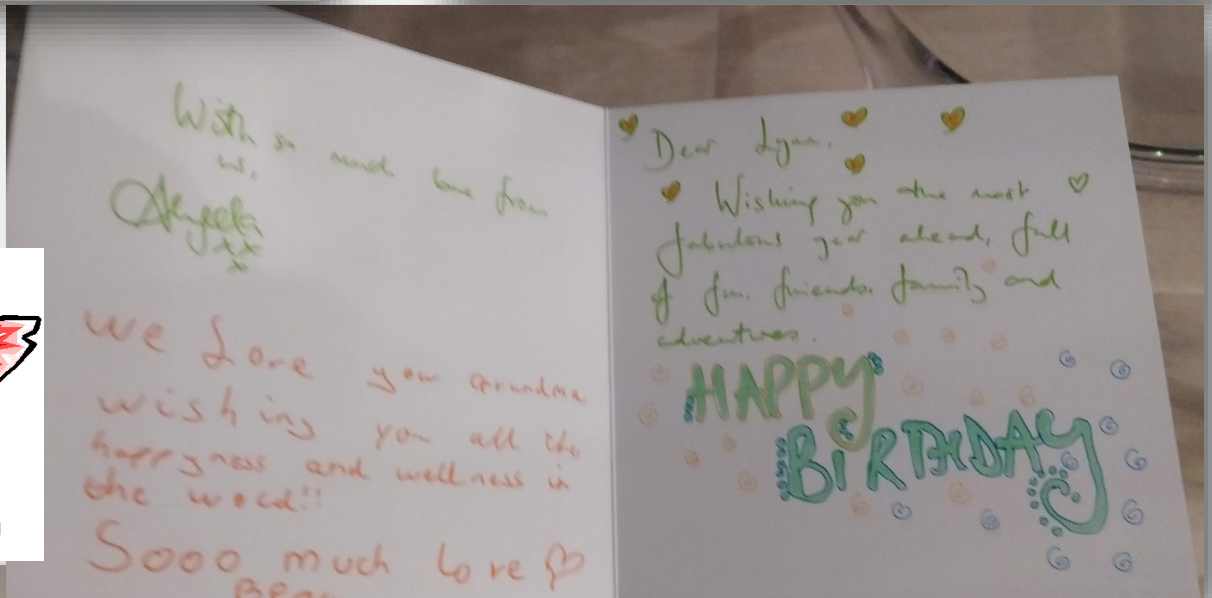 With so much love from
Angela
xx
x
We Love you Grandma
wishing you all the
happyness and wellness in
the world!!
Sooo much love
Dear Lynn,
Wishing you the most
fabulous year ahead, full
of fun, friends, family and
adventures.
HAPPY
BIRTHDAY